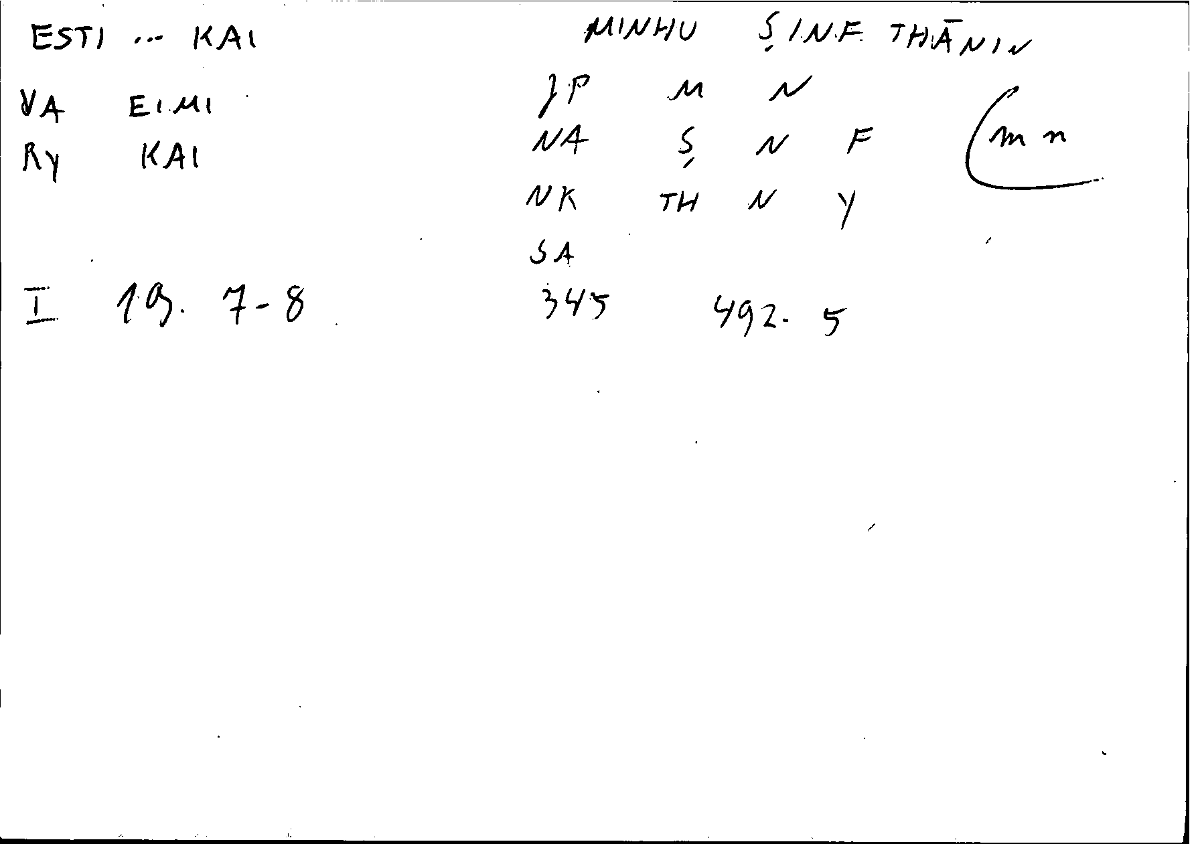 ESTI ... KAI MINHU ṢINF THĀNIN
VA EIMI JP M N
RY KAI NA Ṣ N F (m n
NK TH N Y
SA
I 19. 7-8 345 492. 5